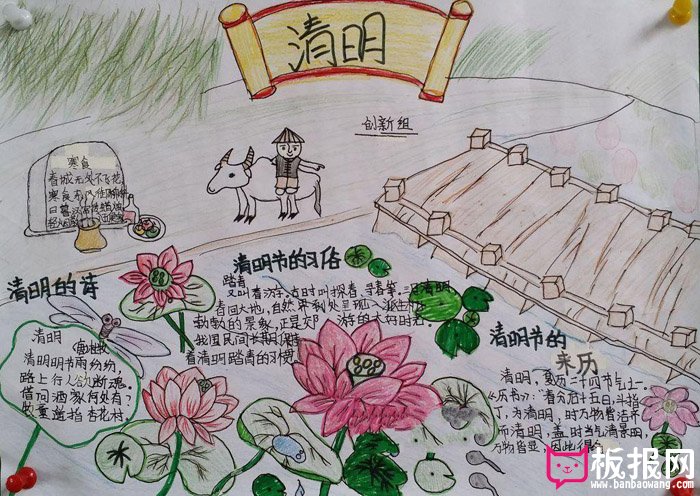 清明
创新组
寒食
春城无处不飞花
寒食东风
日暮汉宫传蜡烛
清明的诗
清明
清明时节雨纷纷,
路上行人欲断魂。
借问酒家何处有?
牧童遥指杏花村。
清明节的习俗
踏青
又叫春游。古时叫探春、寻春等。三月清明,
春回大地,自然界到处呈现一派生机
勃勃的景象,正是郊游的大好时光。
我国民间长期保持
着清明踏青的习惯。
清明节的
来历
清明,夏历二十四节气之一。
历书》:“春分后十五日,斗指
丁,为清明,时万物皆洁齐
而清明,盖时当气清景明,
万物皆显,因此得名
板报网
www.banbaowang.com